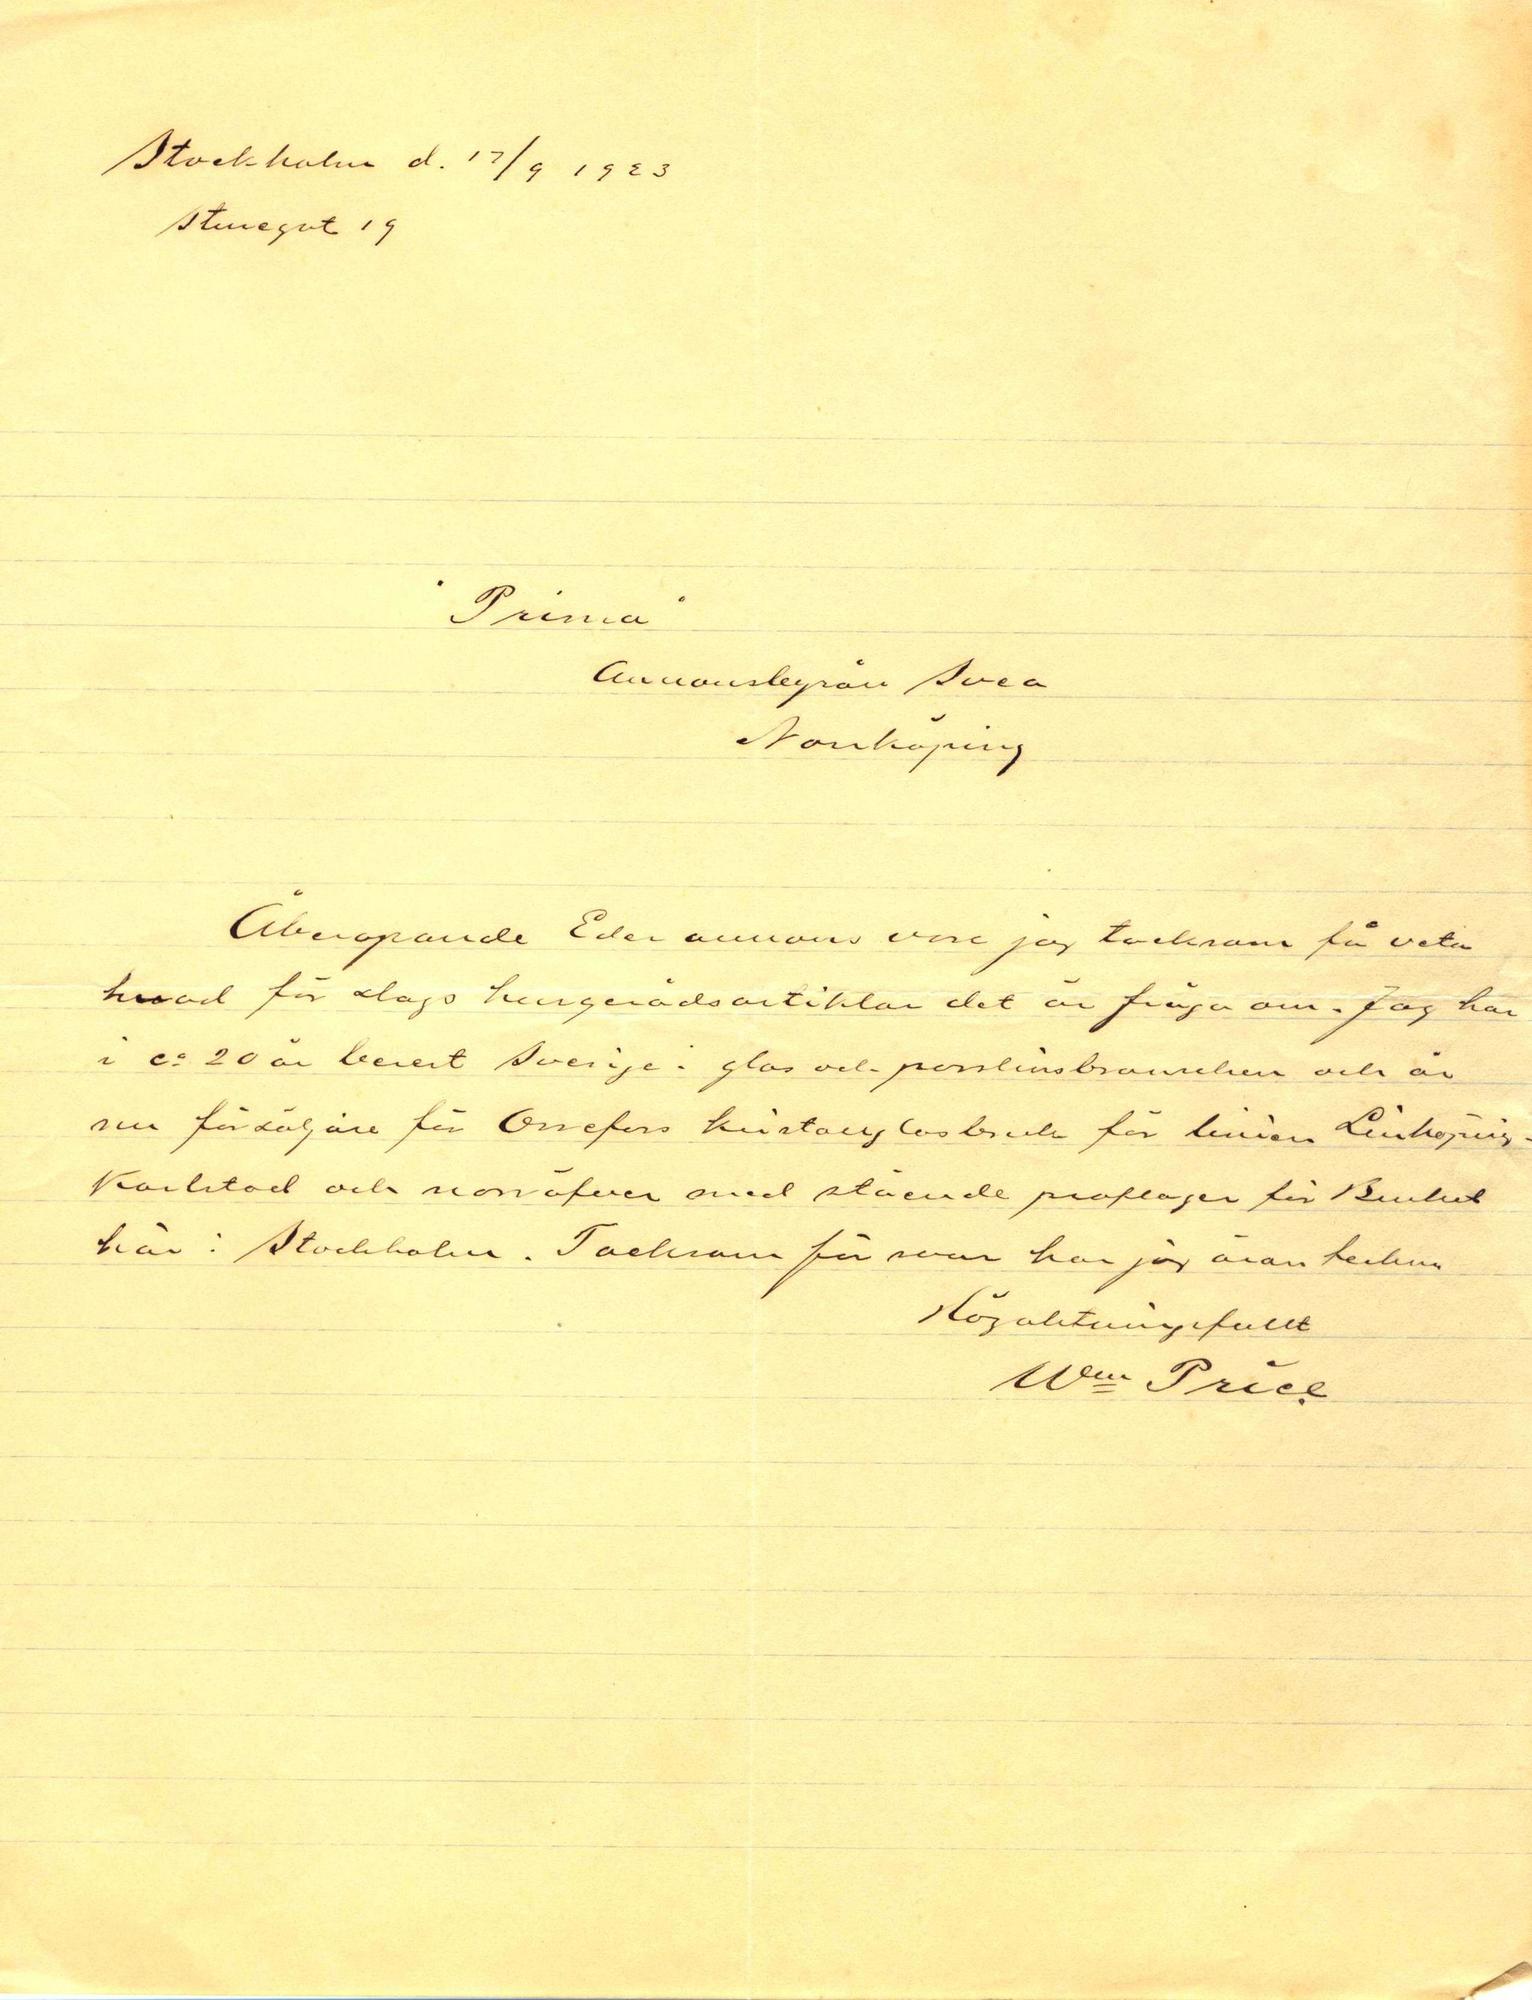 Stockholm d. 17/9 1923
Sturegat 19
"Prima"
Annonsbyrån Svea
Norrköping
Åberopande Eder annons vore jag tacksam få veta
hvad för slags husgerådsartiklar det är fråga om. Jag har
i ca 20 år berest Sverige i glas och porslinsbranschen och är
nu försäljare för Orrefors kristallglasbruk för linien Linköping-
Karlstad och norröfver med stående proflager för Bruket
här i Stockholm. Tacksam för svar har jag äran teckna
Högaktningsfullt
Wm Price